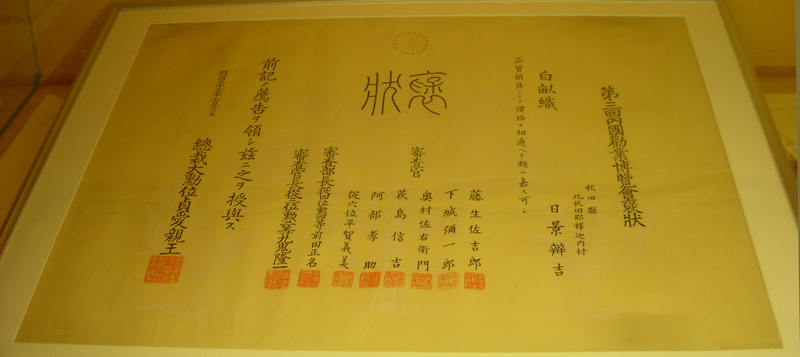 第三回內國勸業博覽會褒狀
秋田縣
北秋田郡釋迦內村
日景辨吉
白畝織
品質精良ニシテ價格モ相適ヘリ頗ル嘉ス可シ
褒狀
審查官
藤生佐吉郎
下城彌一郎
奧村左右衛門
萩島信吉
阿部孝助
從六位平賀義美
審查部長從四位勳四等前田正名
審查官長從三位勳二等九鬼隆一
前記ノ薦吿ヲ領シ茲ニ之ヲ授與ス
明治二十三年七月十一日
總裁大勳位貞愛親王